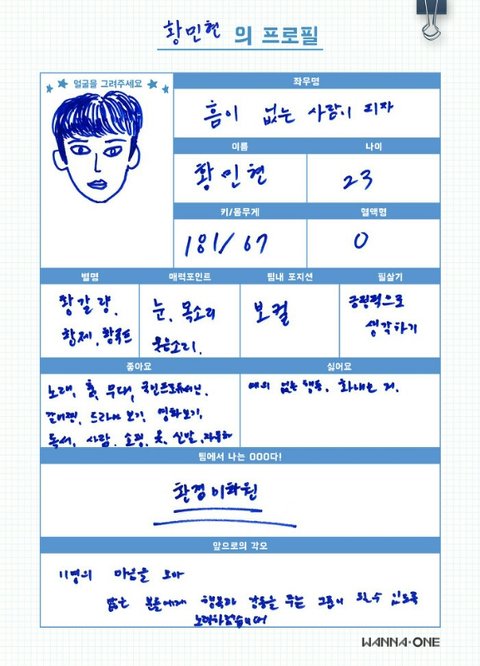 황민현 의 프로필
얼굴을 그려주세요
좌우명
흠이 없는 사람이 되자
이름
나이
황민현
23
키/몸무게
혈액형
181/67
O
별명
매력포인트
팀내 포지션
필살기
황갈량,
황제, 황쿠트
눈, 목소리
웃음소리.
보컬
긍정적으로
생각하기
좋아요
싫어요
노래, 춤, 무대, 국민프로듀서님,
드라마 보기, 영화보기,
독서, 사람, 쇼핑, 옷, 신발,
예의 없는 행동, 화내는 거.
팀에서 나는 OOO다!
환경미화원
앞으로의 각오
11명의 마음을 모아
많은 분들에게 행복과 감동을 주는 그룹이 될 수 있도록
노력하겠습니다
WANNA·ONE